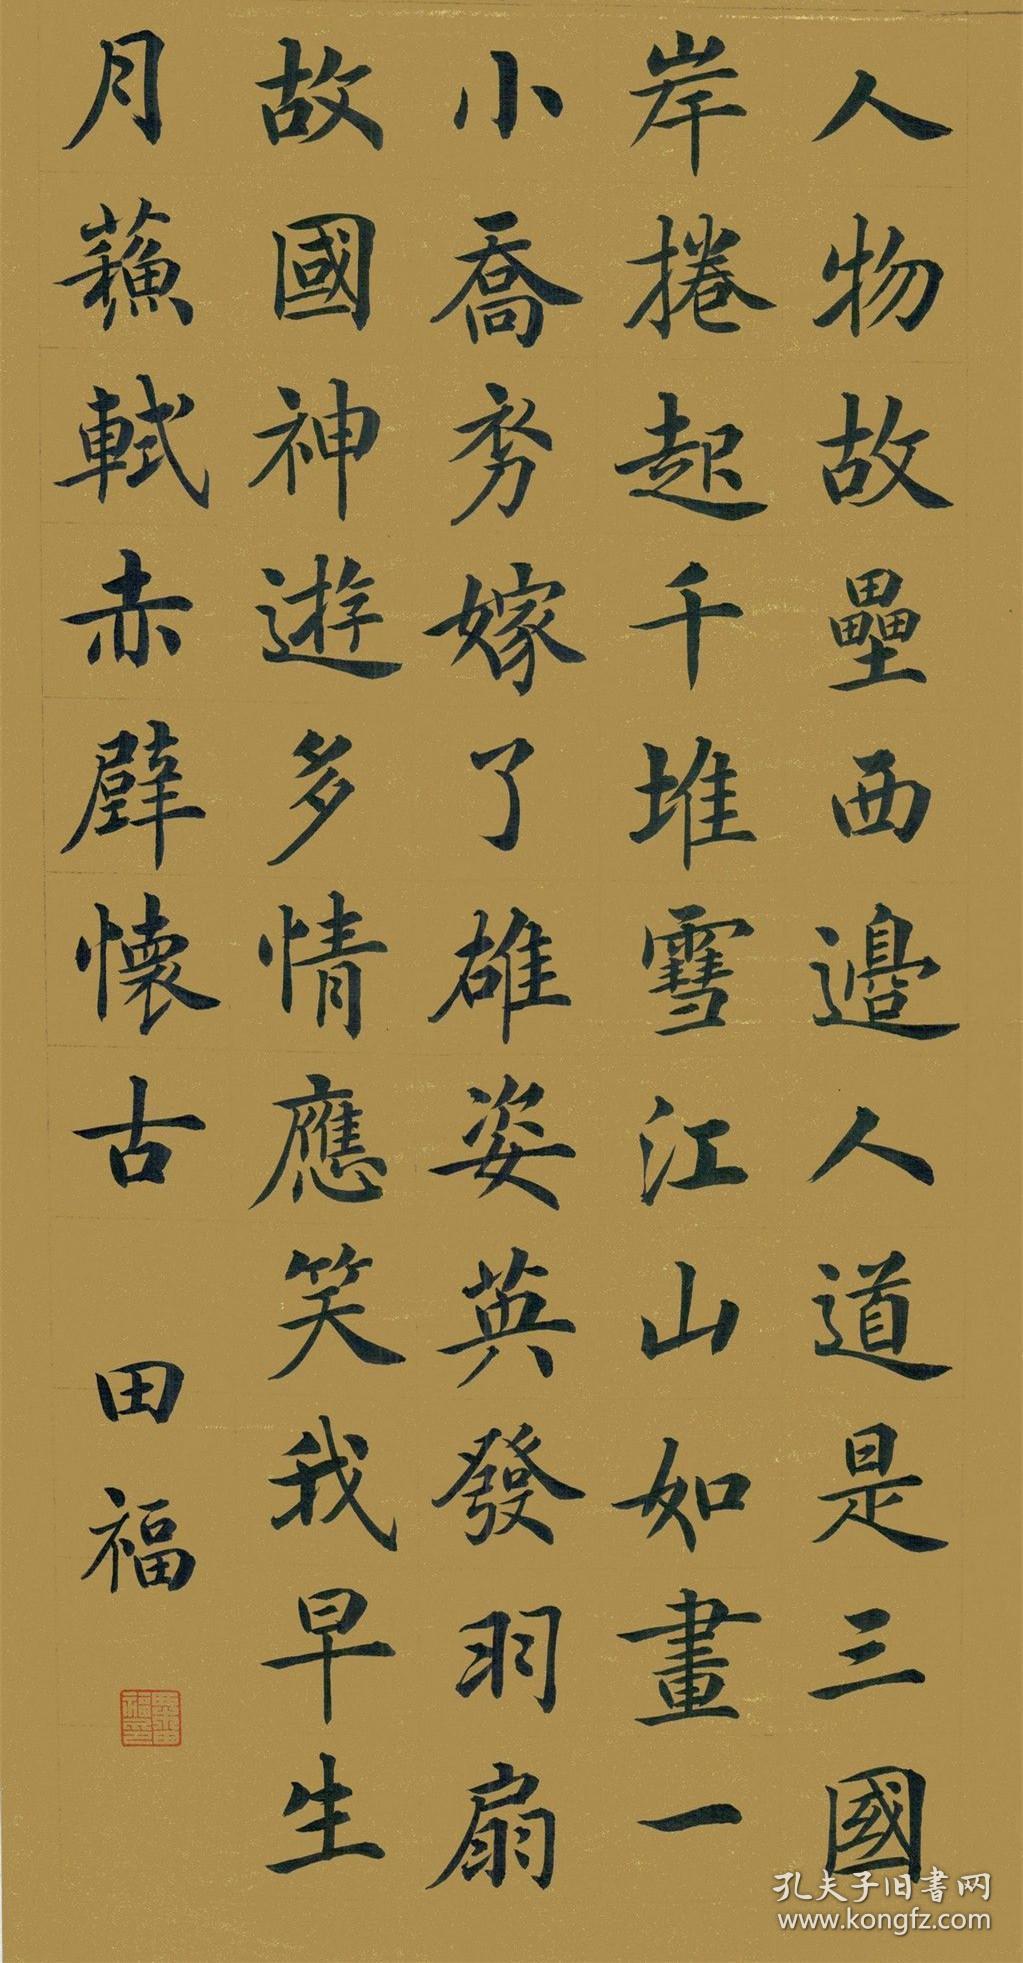 人物故壘西邊人道是三國
岸捲起千堆雪江山如畫一
小喬初嫁了雄姿英發羽扇
故國神遊多情應笑我早生
月蘓軾赤壁懷古
田福
孔夫子旧書网
www.kongfz.com